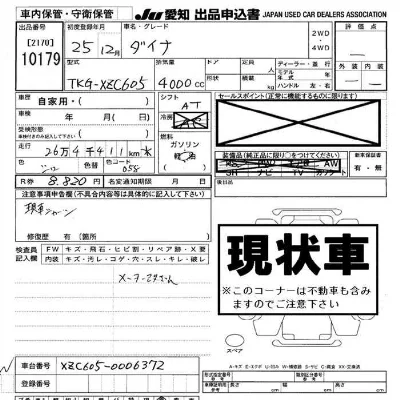 車内保管・守衛保管
JU 愛知 出品申込書 JAPAN USED CAR DEALERS ASSOCIATION
出品番号
[2170]
10179
初度登録年月
25年12月
車名・グレード
ダイナ
2WD
・
4WD
評価
型式
TKG-XZC605
排気量
4000cc
ドア
定員
人
ディーラー・並行
モデル年式
年
ハンドル 左・右
外
内
車歴
自家用・
シフト
AT
セールスポイント(正常に機能するものに限ります)
車検
年 月
冷房
走行
26万4千411km
燃料
ガソリン
軽油
装備品(純正品に限り○をつけてください)
車両保証書
有・無
色
色替
色コード
058
R券
8,820円
名変通知期限
月 日
後日品
注意事項申告欄(不具合内容等は具体的に記入して下さい)
修復歴
有(箇所
検査員記入欄
FW
キズ・飛石・ヒビ割・リペア跡・X要
内装
キズ・汚レ・コゲ・穴・スレ・キレ・破レ
現状車
※このコーナーは不動車も含み
ますのでご注意下さい
スペア
車台番号
XZC605-0006372
登録番号
長さ
cm
幅
cm
高さ
cm